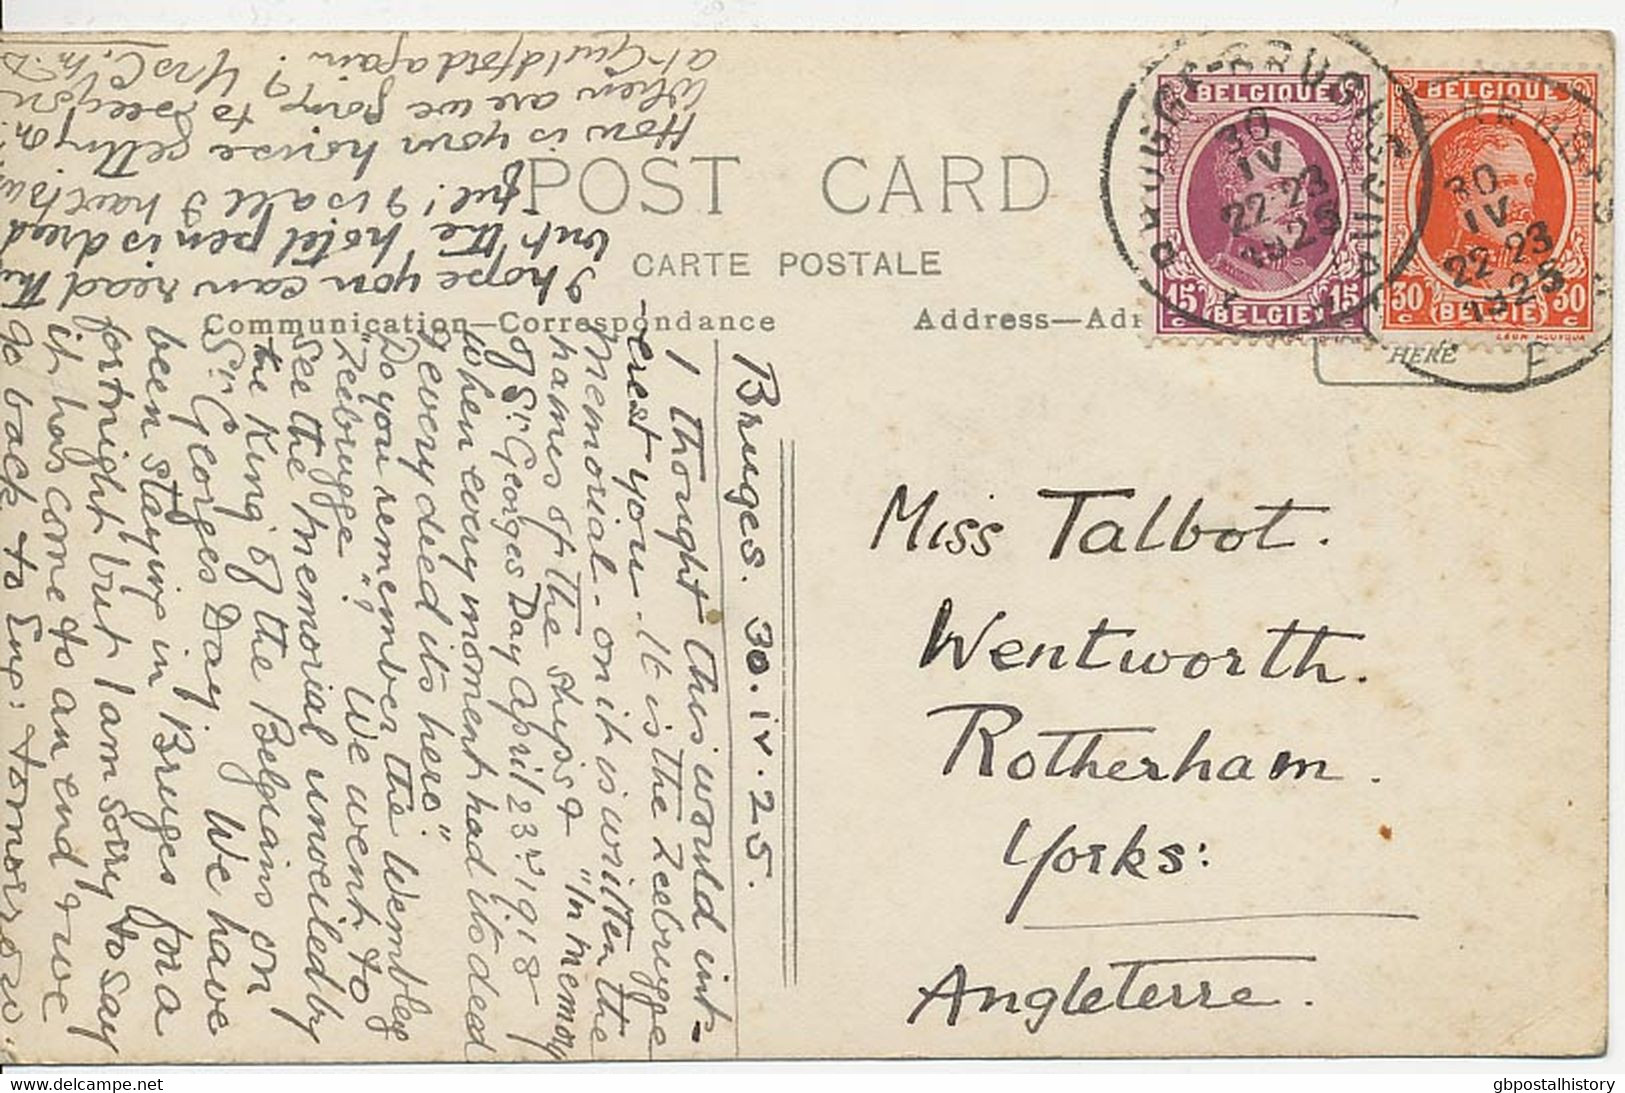 POST CARD
CARTE POSTALE
Communication—Correspondance
Address—Adr
HERE
BELGIQUE
15 15
BELGIË
BELGIQUE
30 30
BELGIË
BRUGGE-BRUGES
30
IV
22-23
1925
30
IV
22-23
1925
Miss Talbot.
Wentworth.
Rotherham.
Yorks:
Angleterre.
Bruges. 30.iv.25.
I thought this would int-
erest you. It is the Zeebrugge
Memorial - on it is written the
names of the ships & "In memory
of St. George's Day April 23rd 1918
When every moment had its deed
& every deed its hero."
Do you remember the Wembley
"Zeebrugge"? We went to
see the memorial unveiled by
the King of the Belgians on
St. Georges Day. We have
been staying in Bruges for a
fortnight but I am sorry to say
it has come to an end & we
go back to Eng: tomorrow.
I hope you can read this
but the hotel pen is dread
ful! I is all I have
How is your house getting on?
When are we going to see you
at Guildford again? Yrs C.M.D
gbpostalhistory